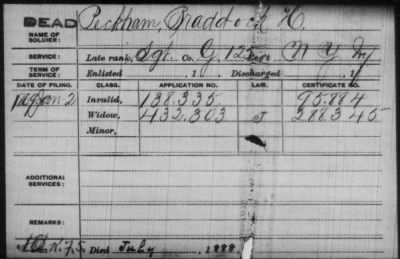 DEAD Peckham, Braddock H.
NAME OF SOLDIER:
SERVICE: Late rank, Sgt. Co. G, 125 Reg't N Y Inf
TERM OF SERVICE: Enlisted , 1 Discharged , 1
DATE OF FILING. CLASS. APPLICATION NO. LAW. CERTIFICATE NO.
Invalid, 138.335 95.884
Widow, 432.303 288.345
Minor,
ADDITIONAL SERVICES:
REMARKS:
Died July , 1888